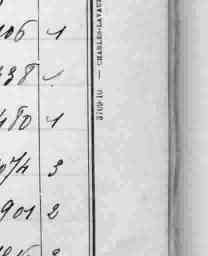 106 1
238 1
480 1
074 3
901 2
3709-10 — CHARLES-LAVAUZ